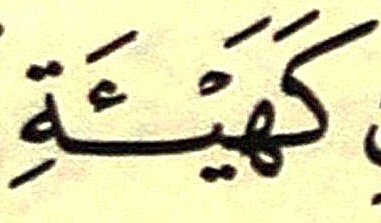 كَهَيْـَٔةِ